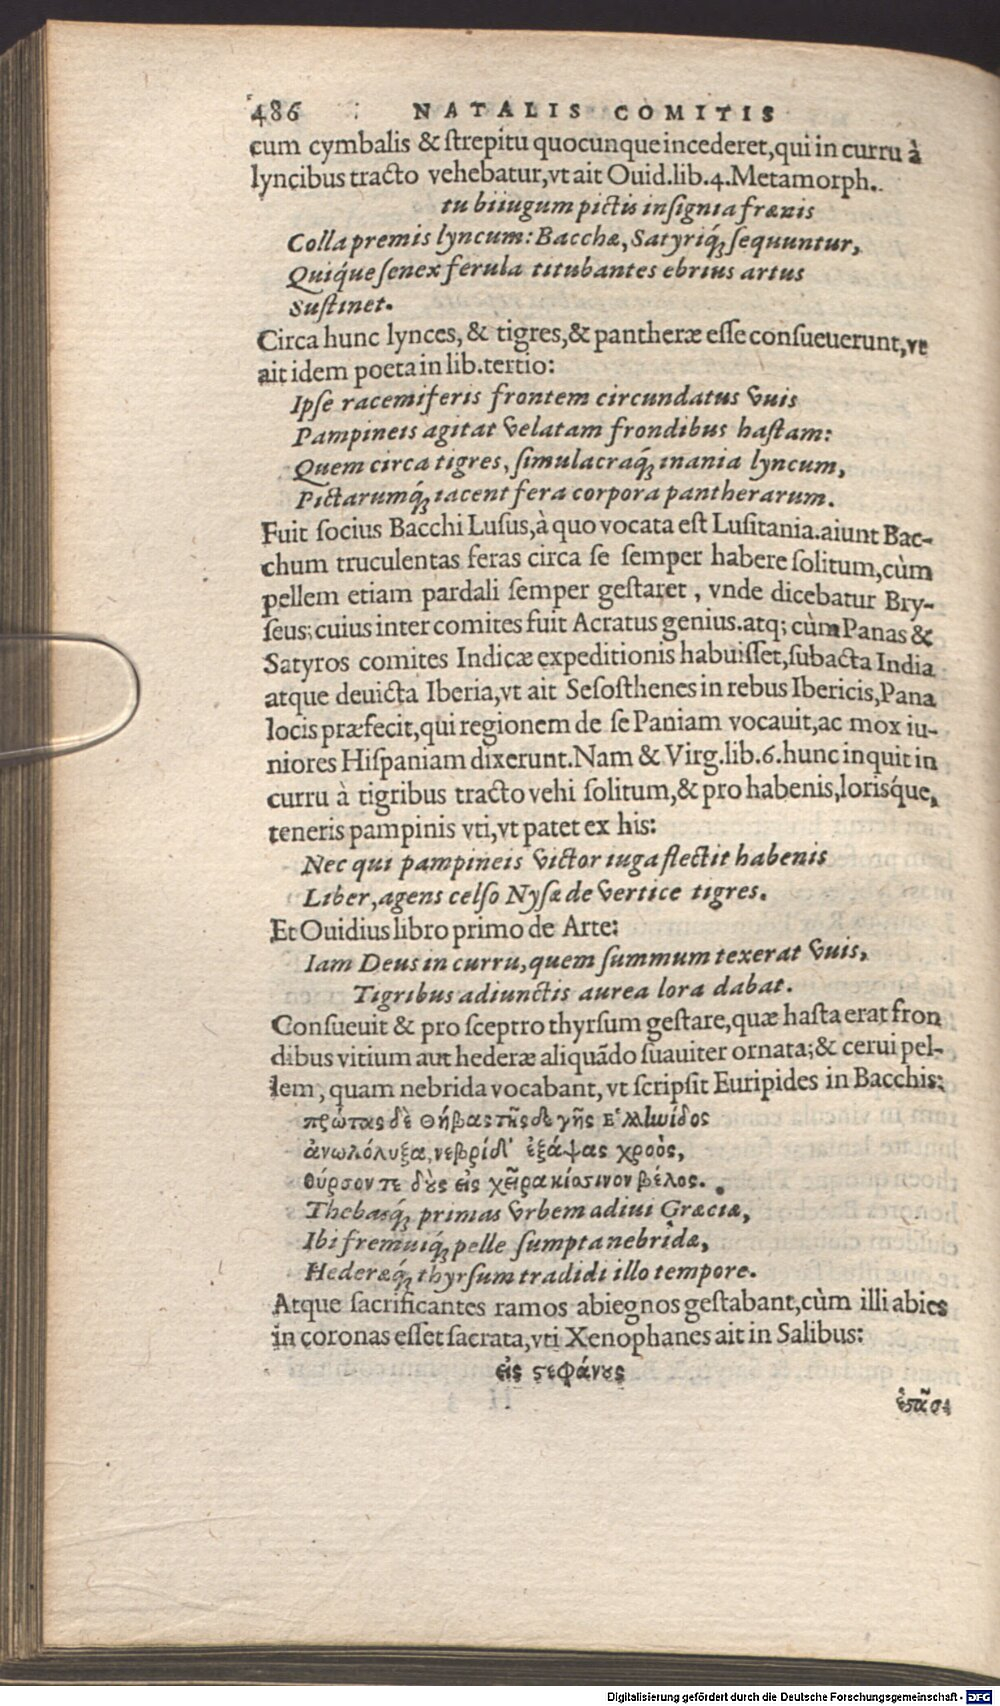 486 NATALIS COMITIS
cum cymbalis & ſtrepitu quocunque incederet, qui in curru à
lyncibus tracto vehebatur, vt ait Ouid. lib. 4. Metamorph.
tu biiugum pictis inſignia frænis
Colla premis lyncum: Bacchæ, Satyriq́; ſequuntur,
Quiq́ue ſenex ferula titubantes ebrius artus
Suſtinet.
Circa hunc lynces, & tigres, & pantheræ eſſe conſueuerunt, vt
ait idem poeta in lib. tertio:
Ipſe racemiferis frontem circundatus vuis
Pampineis agitat velatam frondibus haſtam:
Quem circa tigres, ſimulacraq́; inania lyncum,
Pictarumq́; iacent fera corpora pantherarum.
Fuit ſocius Bacchi Luſus, à quo vocata eſt Luſitania. aiunt Bac-
chum truculentas feras circa ſe ſemper habere ſolitum, cùm
pellem etiam pardali ſemper geſtaret, vnde dicebatur Bry-
ſeus; cuius inter comites fuit Acratus genius. atq; cùm Panas &
Satyros comites Indicæ expeditionis habuiſſet, ſubacta India
atque deuicta Iberia, vt ait Seſoſthenes in rebus Ibericis, Pana
locis præfecit, qui regionem de ſe Paniam vocauit, ac mox iu-
niores Hiſpaniam dixerunt. Nam & Virg. lib. 6. hunc inquit in
curru à tigribus tracto vehi ſolitum, & pro habenis, loriſq́ue,
teneris pampinis vti, vt patet ex his:
Nec qui pampineis victor iuga flectit habenis
Liber, agens celſo Nyſæ de vertice tigres.
Et Ouidius libro primo de Arte:
Iam Deus in curru, quem ſummum texerat vuis,
Tigribus adiunctis aurea lora dabat.
Conſueuit & pro ſceptro thyrſum geſtare, quæ haſta erat fron
dibus vitium aut hederæ aliquãdo ſuauiter ornata; & cerui pel-
lem, quam nebrida vocabant, vt ſcripſit Euripides in Bacchis:
πρώτας δὲ Θήβας τῆσδε γῆς Ἑλληνίδος
ἀνωλόλυξα, νεβρίδ' ἐξάψας χροὸς,
θύρσον τε δοὺς εἰς χεῖρα κίσσινον βέλος.
Thebasq́; primas vrbem adiui Græciæ,
Ibi fremuiq́; pelle ſumpta nebridæ,
Hederæq́; thyrſum tradidi illo tempore.
Atque ſacrificantes ramos abiegnos geſtabant, cùm illi abies
in coronas eſſet ſacrata, vti Xenophanes ait in Salibus:
εἰς στεφάνους
Digitalisierung gefördert durch die Deutsche Forschungsgemeinschaft - DFG